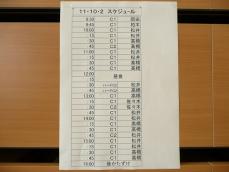 11・10・2 スケジュール
9:30 C1
45 C1 松本
10:00 C1 松井
15 C1 松井
30 C1 高橋
45 C2 高橋
11:00 C1 松井
15 C1 松井
30 C1 高橋
45 C2 高橋
12:00
15 昼食
30 松井
45 高橋
13:00 C1 高橋
15 C1 佐々木
30 C2 佐々木
45 C1 高橋
14:00 C1 松井
15 C1 松井
30 C1 高橋
45 C2 松井
15:00 C1 松井
15 C1 高橋
30 C1 高橋
45 C1 高橋
16:00 後かたずけ